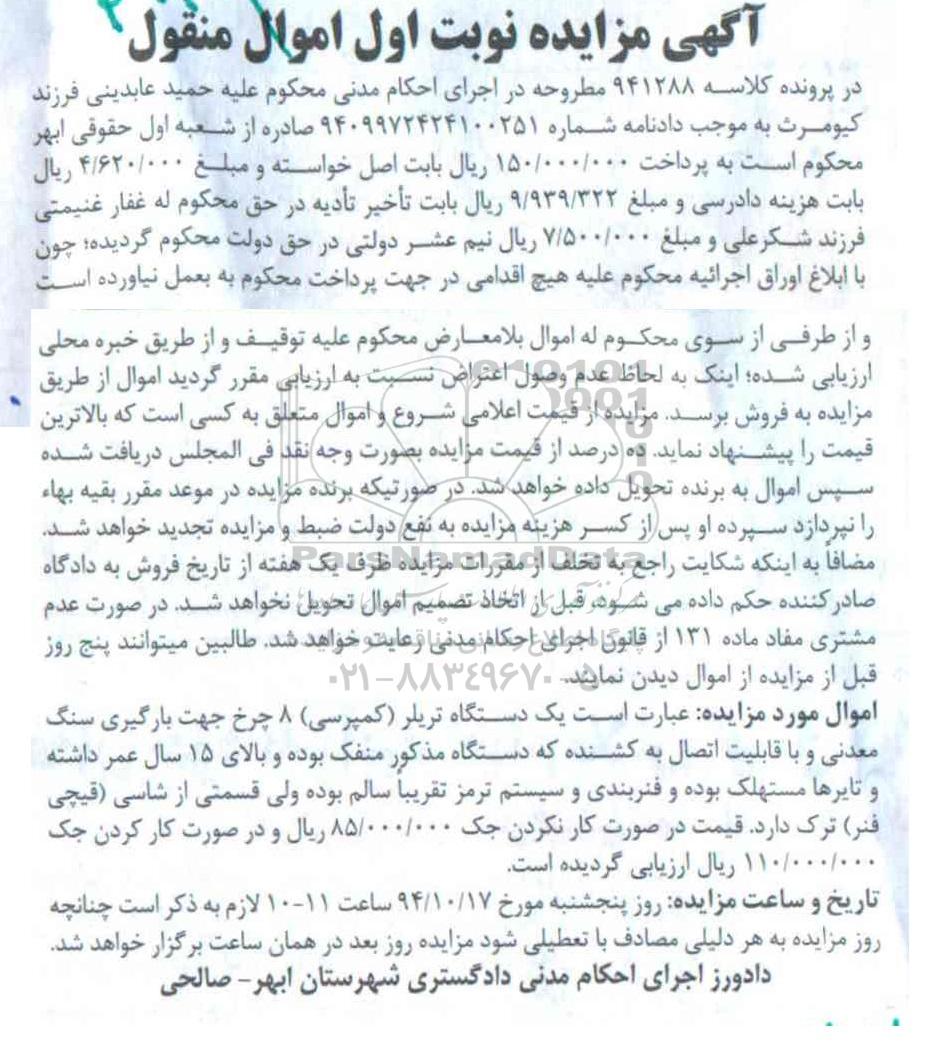 آگهی مزایده نوبت اول اموال منقول
در پرونده کلاسه ۹۴۱۲۸۸ مطروحه در اجرای احکام مدنی محکوم علیه حمید عابدینی فرزند
کیومرث به موجب دادنامه شماره ۹۴۰۹۹۷۲۴۲۴۱۰۰۲۵۱ صادره از شعبه اول حقوقی ابهر
محکوم است به پرداخت ۱۵۰/۰۰۰/۰۰۰ ریال بابت اصل خواسته و مبلغ ۴/۶۲۰/۰۰۰ ریال
بابت هزینه دادرسی و مبلغ ۹/۹۳۹/۳۲۲ ریال بابت تأخیر تأدیه در حق محکوم له غفار غنیمتی
فرزند شکرعلی و مبلغ ۷/۵۰۰/۰۰۰ ریال نیم عشر دولتی در حق دولت محکوم گردیده؛ چون
با ابلاغ اوراق اجرائیه محکوم علیه هیچ اقدامی در جهت پرداخت محکوم به بعمل نیاورده است
و از طرفی از سوی محکوم له اموال بلامعارض محکوم علیه توقیف و از طریق خبره محلی
ارزیابی شده؛ اینک به لحاظ عدم وصول اعتراض نسبت به ارزیابی مقرر گردید اموال از طریق
مزایده به فروش برسد. مزایده از قیمت اعلامی شروع و اموال متعلق به کسی است که بالاترین
قیمت را پیشنهاد نماید. ده درصد از قیمت مزایده بصورت وجه نقد فی المجلس دریافت شده
سپس اموال به برنده تحویل داده خواهد شد. در صورتیکه برنده مزایده در موعد مقرر بقیه بهاء
را نپردازد سپرده او پس از کسر هزینه مزایده به نفع دولت ضبط و مزایده تجدید خواهد شد.
ParsNamadData
مضافاً به اینکه شکایت راجع به تخلف از مقررات مزایده ظرف یک هفته از تاریخ فروش به دادگاه
صادر کننده حکم داده می شود، قبل از اتخاذ تصمیم اموال تحویل نخواهد شد. در صورت عدم
مشتری مفاد ماده ۱۳۱ از قانون اجرای احکام مدنی رعایت خواهد شد. طالبین میتوانند پنج روز
قبل از مزایده از اموال دیدن نمایند.
۰۲۱-۸۸۳۴۹۶۷۰-۵
اموال مورد مزایده: عبارت است یک دستگاه تریلر (کمپرسی) ۸ چرخ جهت بارگیری سنگ
معدنی و با قابلیت اتصال به کشنده که دستگاه مذکور منفک بوده و بالای ۱۵ سال عمر داشته
و تایرها مستهلک بوده و فنربندی و سیستم ترمز تقریباً سالم بوده ولی قسمتی از شاسی (قیچی
فنر) ترک دارد. قیمت در صورت کار نکردن جک ۸۵/۰۰۰/۰۰۰ ریال و در صورت کار کردن جک
۱۱۰/۰۰۰/۰۰۰ ریال ارزیابی گردیده است.
تاریخ و ساعت مزایده: روز پنجشنبه مورخ ۹۴/۱۰/۱۷ ساعت ۱۱-۱۰ لازم به ذکر است چنانچه
روز مزایده به هر دلیلی مصادف با تعطیلی شود مزایده روز بعد در همان ساعت برگزار خواهد شد.
دادورز اجرای احکام مدنی دادگستری شهرستان ابهر- صالحی